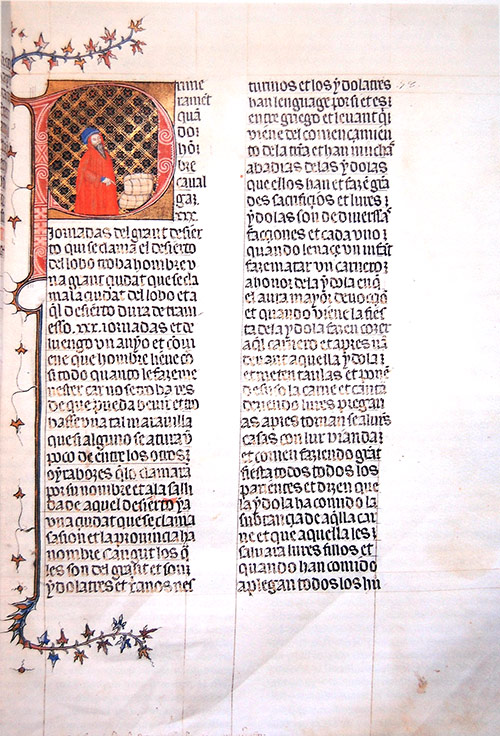 rime
ramēt
quā
do
hō
bre
caual
gar
xxx
Jornadas del grant desier
to qui se clama el desierto
del lobo troba hombre v
na grant çiudat que se cla
ma la çiudat del lobo et a
q̄l desierto dura de traui
esso .xxx. iornadas et de
luengo vn anyo et conui
ene que hombre lieue cō
si todo quanto le faze me
nester car no se troba res
de que pueda beuir et tro
basse vna tal marauilla
que si alguno se atura vn
poco de entre los otros
oyra bozes q̄ lo clamarā
por su nombre et a la salli
da de aquel desierto ya
vna çiudat que se clama
sasion et la prouinçia ha
nombre cangut los q̄
les son del grasit et son
ydolatres et xp̄anos nes
turinos et los ydolatres
han lenguage por si et es
entre griego et leuant q̄
viene del començamien
to de la trā et han muchas
abadias de las ydolas
que ellos han et fazē grā
des sacrifiçios et lures
ydolas son de diuersas
façciones et cada vno
quando le naçe vn infāt
faze matar vn carnero
a honor de la ydola en q̄
el aura mayor deuoçiō
et quando viene la fies
ta de la ydola fazen cozer
aq̄l carnero et apres rē
derant aquella ydola
et meten taulas et ponē
desuso la carne et cantā
deziendo lures pregari
as apres tornan se a lures
casas con lur vianda
et comen faziendo grāt
fiesta todos todos los
parientes et dizen que
la ydola ha comido la
substançia de aq̄lla car
ne et que aquella les
saluara lures fillos et
quando han comido
aplegan todos los hu